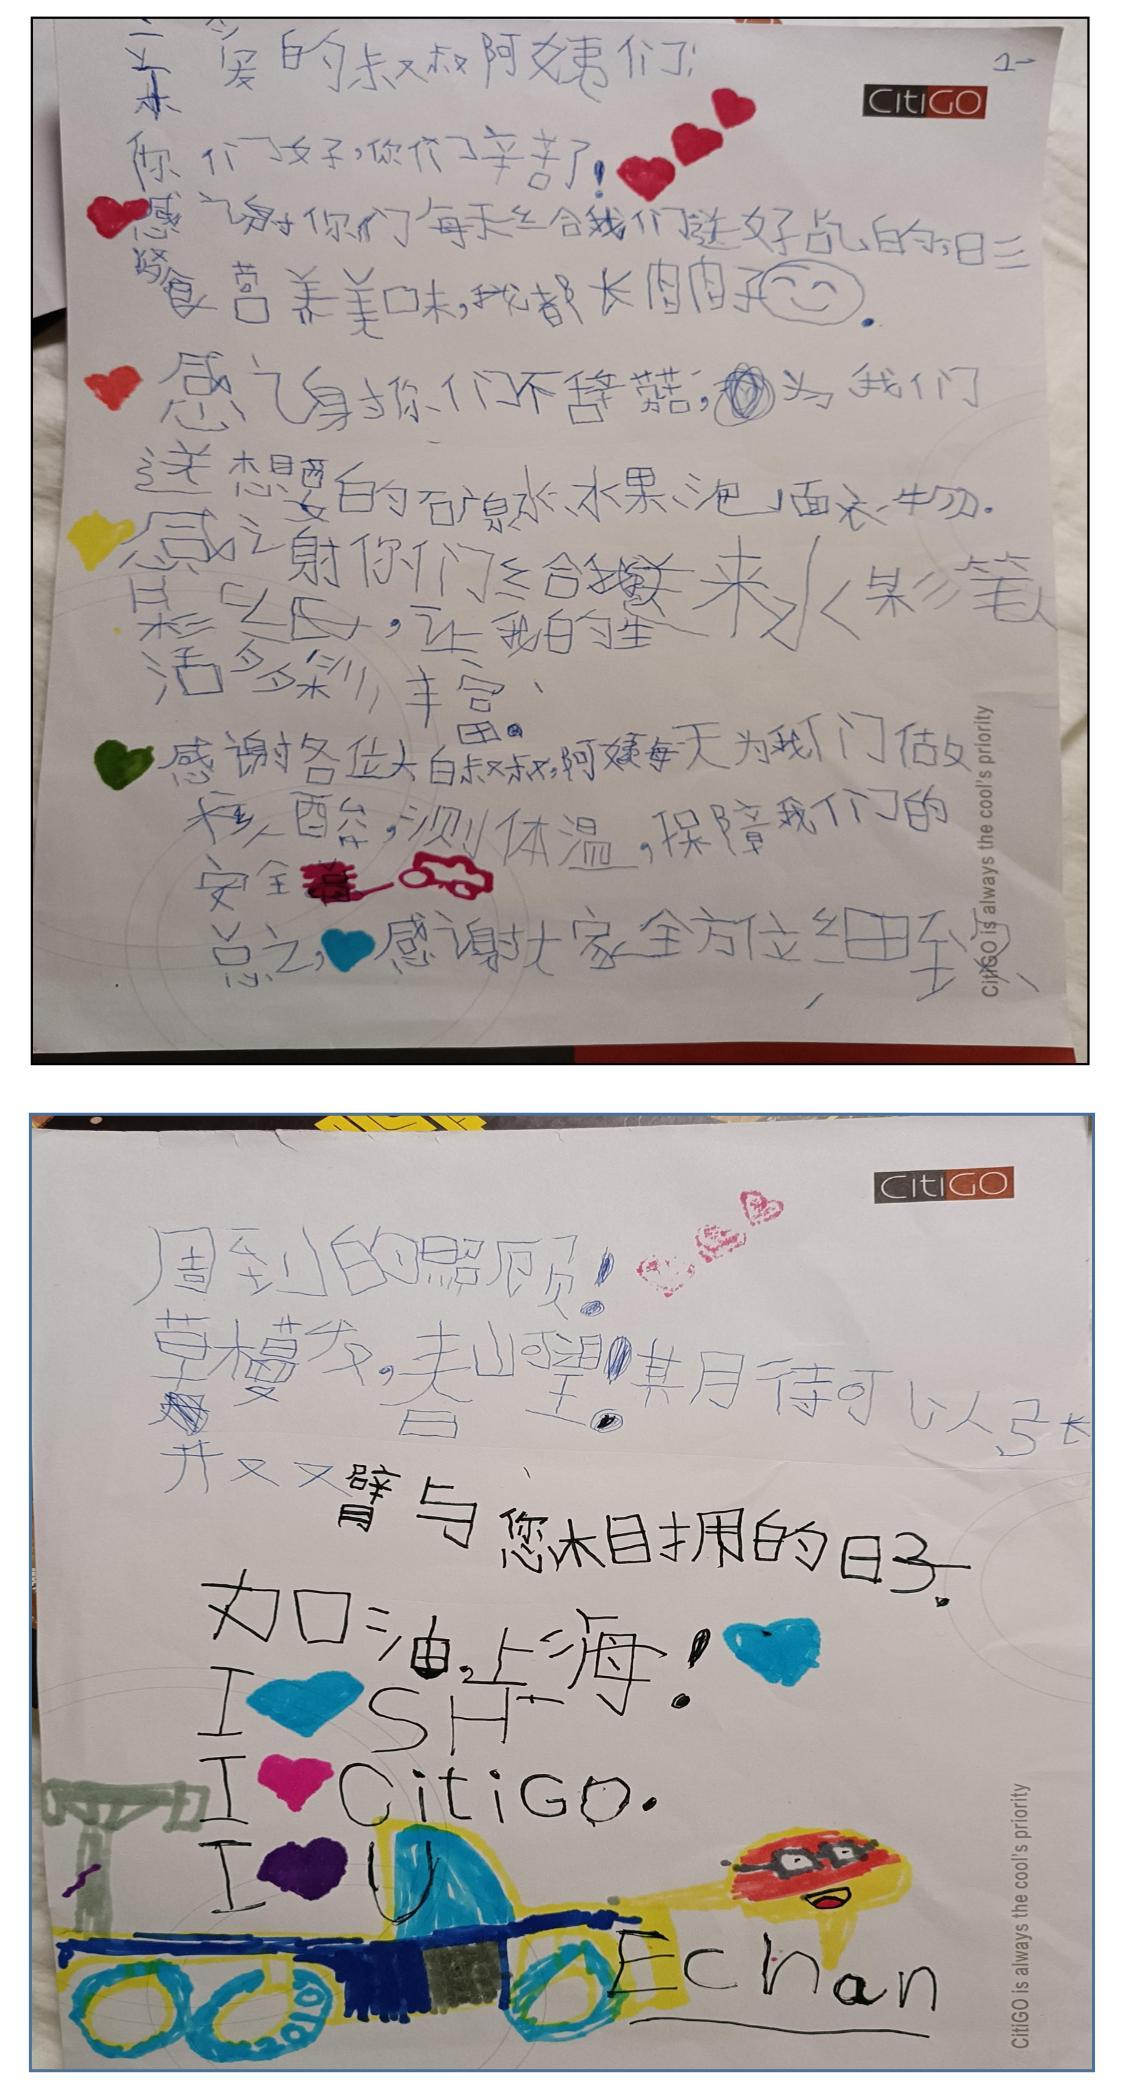 亲爱的叔叔阿姨们:
CitiGO
你们好,你们辛苦了!
感谢你们每天给我们送好吃的,日三
餐营养美味,我都长肉肉了。
感谢你们不辞辛苦,为我们
送想要的矿泉水、水果、泡面、衣物.
感谢你们给我送来水彩笔
,让我的生
活多彩丰富.
感谢各位大白叔叔,阿姨每天为我们做
核酸,测体温,保障我们的
安全
总之,感谢大家全方位细致
CitiGO is always the cool's priority
CitiGO
周到的照顾!
草木蔓发,春山可望!期待可以张
开双臂与您相拥的日子.
加油,上海!
I SH
I CitiGO.
I U
Echan
CitiGO is always the cool's priority